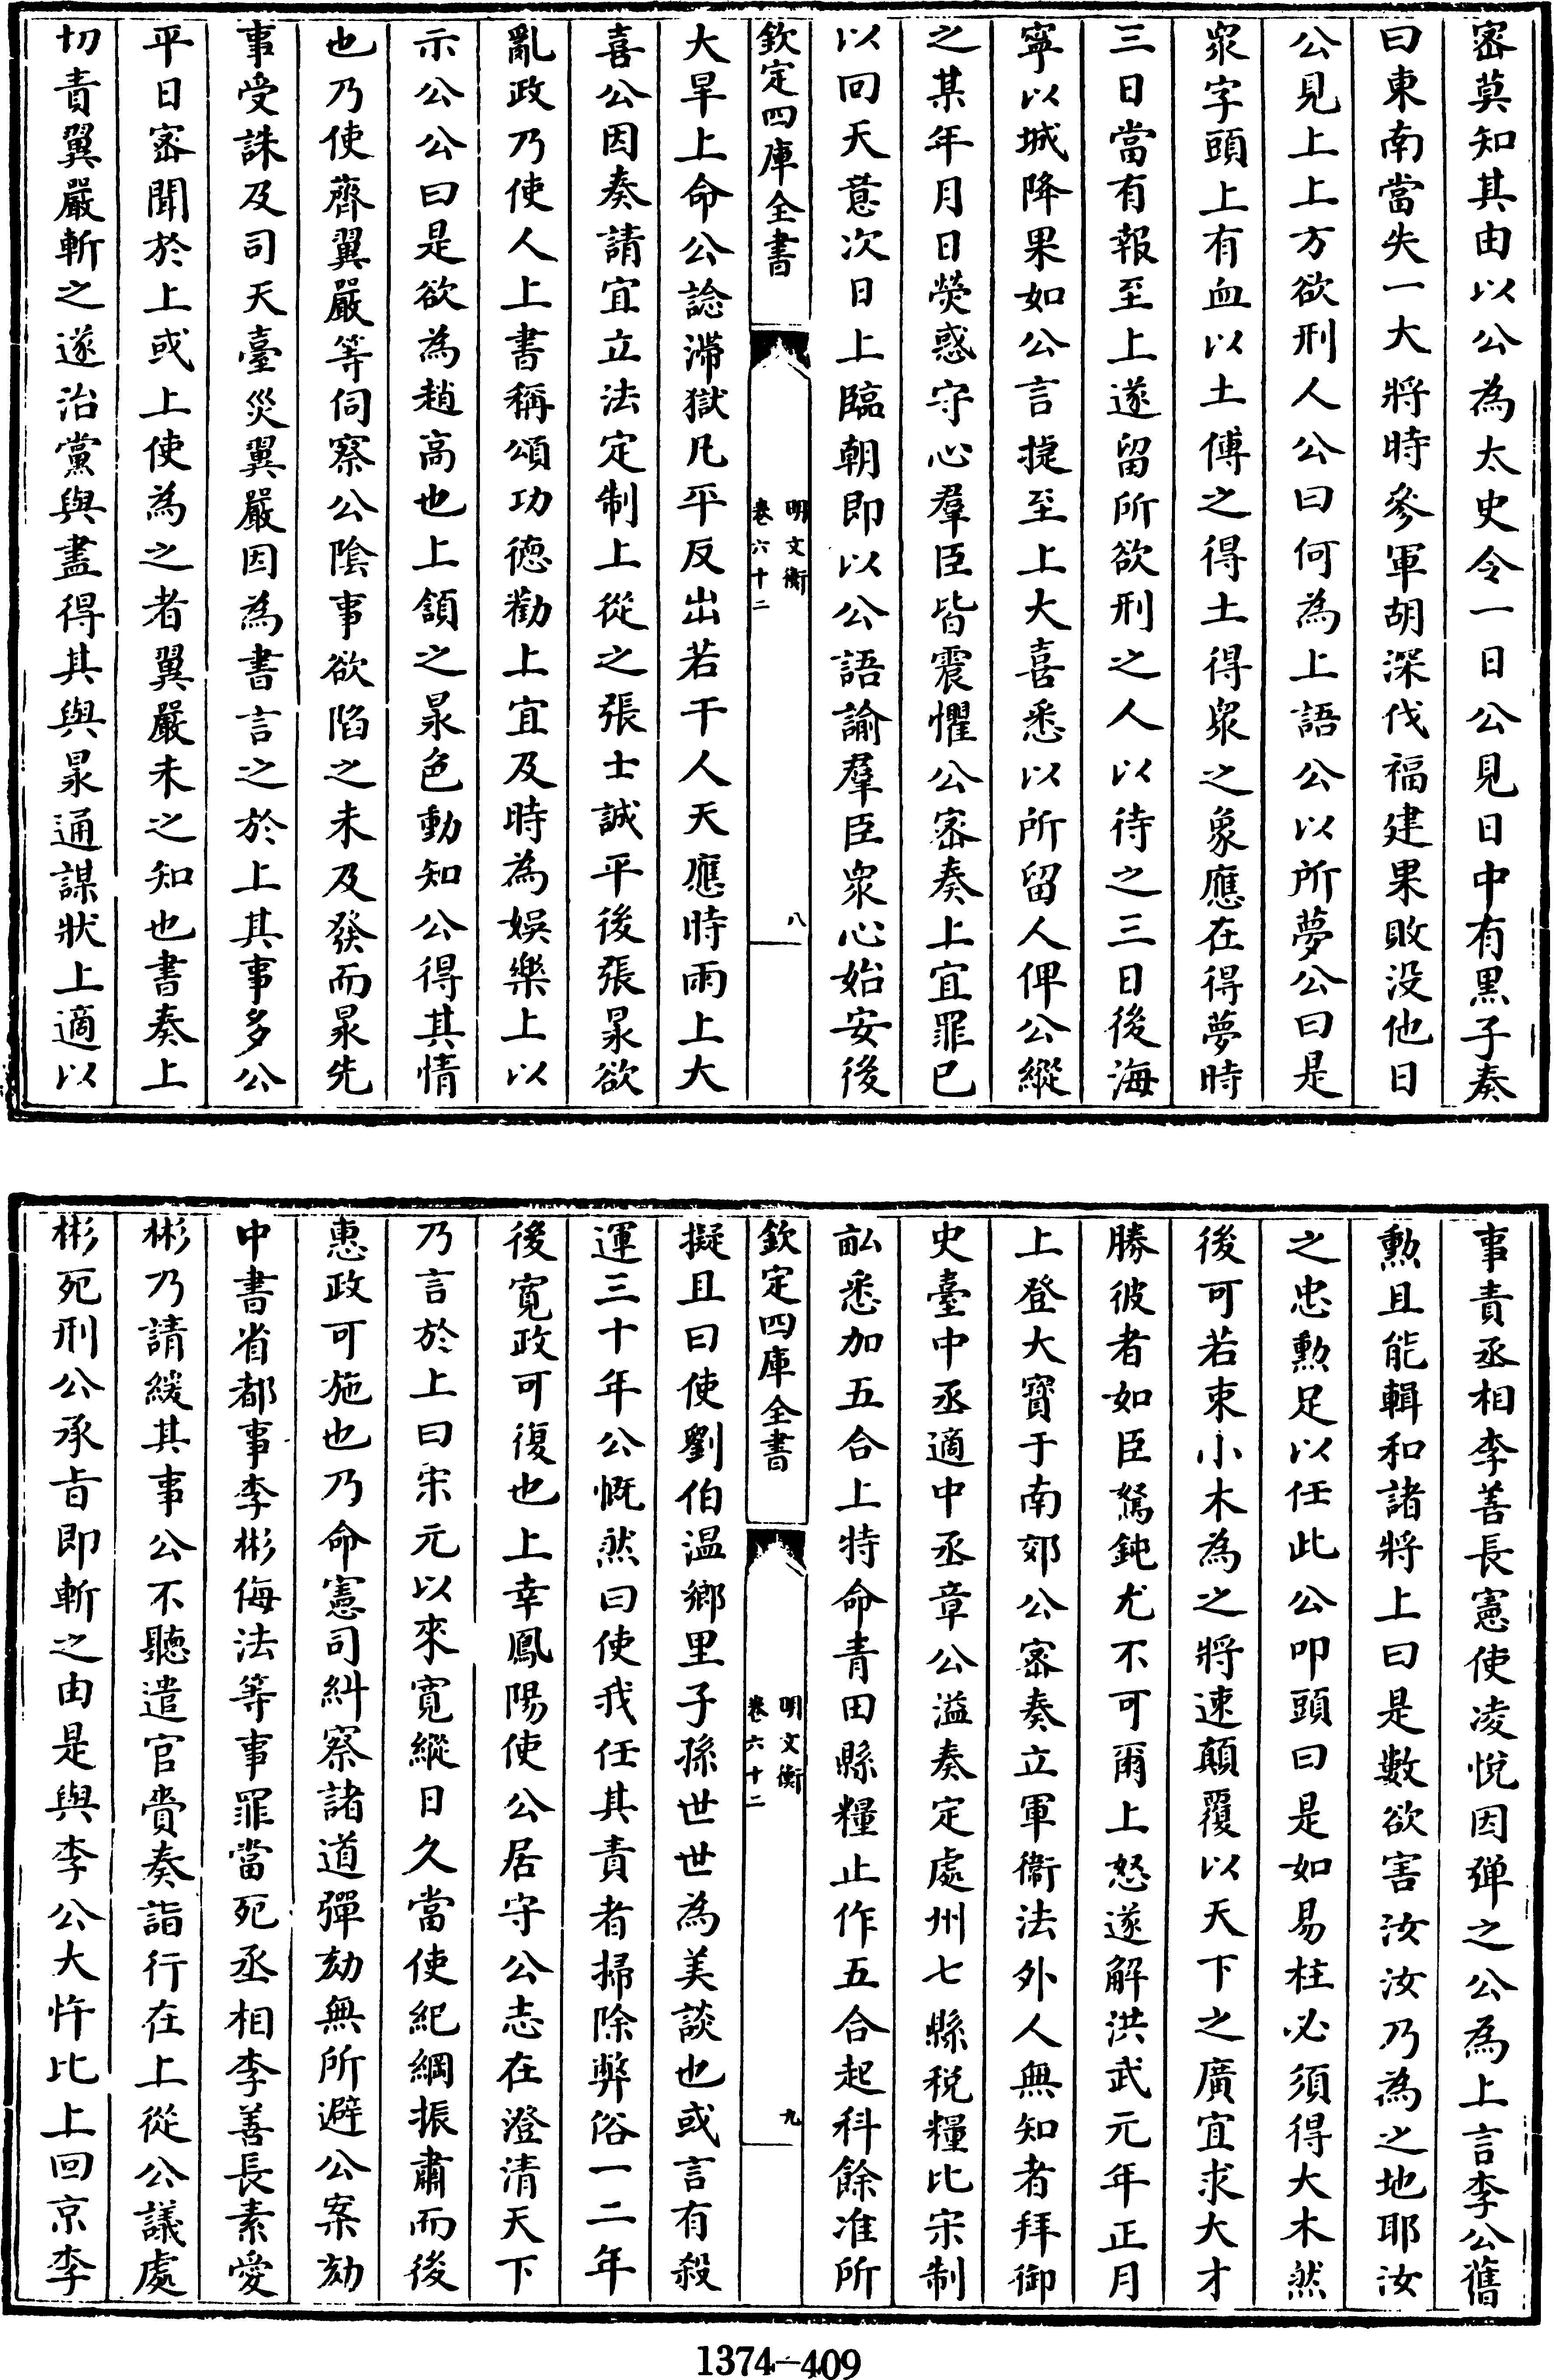 密莫知其由以公為太史令一日公見日中有黑子奏
曰東南當失一大將時參軍胡深伐福建果敗没他日
公見上上方欲刑人公曰何為上語公以所夢公曰是
衆字頭上有血以土傅之得土得衆之象應在得夢時
三日當有報至上遂留所欲刑之人以待之三日後海
寧以城降果如公言捷至上大喜悉以所留人俾公縱
之某年月日熒惑守心羣臣皆震懼公密奏上宜罪已
以回天意次日上臨朝即以公語諭羣臣衆心始安後
欽定四庫全書
明文衡
卷六十二
八
大旱上命公諗滯獄凡平反出若干人天應時雨上大
喜公因奏請宜立法定制上從之張士誠平後張昶欲
亂政乃使人上書稱頌功德勸上宜及時為娛樂上以
示公公曰是欲為趙高也上頷之昶色動知公得其情
也乃使齊翼嚴等伺察公陰事欲陷之未及發而昶先
事受誅及司天臺災翼嚴因為書言之於上其事多公
平日密聞於上或上使為之者翼嚴未之知也書奏上
切責翼嚴斬之遂治黨與盡得其與昶通謀狀上適以
事責丞相李善長憲使凌悅因彈之公為上言李公舊
勲且能輯和諸將上曰是數欲害汝汝乃為之地耶汝
之忠勲足以任此公叩頭曰是如易柱必須得大木然
後可若束小木為之將速顛覆以天下之廣宜求大才
勝彼者如臣駑鈍尤不可爾上怒遂解洪武元年正月
上登大寶于南郊公密奏立軍衞法外人無知者拜御
史臺中丞適中丞章公溢奏定處州七縣税糧比宋制
畝悉加五合上特命青田縣糧止作五合起科餘准所
欽定四庫全書
明文衡
卷六十二
九
擬且曰使劉伯温鄉里子孫世世為美談也或言有殺
運三十年公慨然曰使我任其責者掃除弊俗一二年
後寛政可復也上幸鳳陽使公居守公志在澄清天下
乃言於上曰宋元以來寛縱日久當使紀綱振肅而後
惠政可施也乃命憲司糾察諸道彈劾無所避公案劾
中書省都事李彬侮法等事罪當死丞相李善長素愛
彬乃請緩其事公不聽遣官賫奏詣行在上從公議處
彬死刑公承旨即斬之由是與李公大忤比上回京李
1374-409